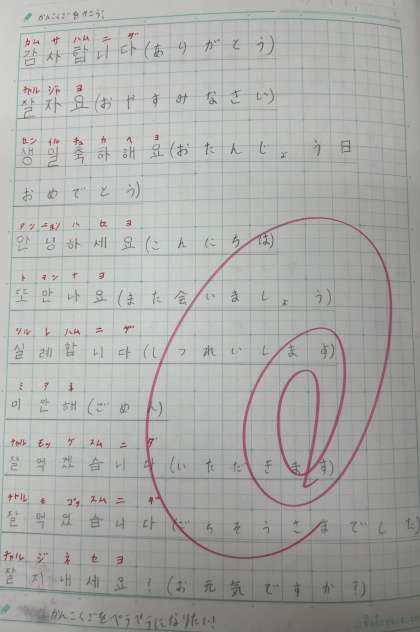 かんこくごをかこう!
カム サ ハム ニ ダ
감사합니다(ありがとう)
チャル ジャ ヨ
잘자요(おやすみなさい)
セン イル チュ カ ヘ ヨ
생일축하해요(おたんじょう日
おめでとう)
アン ニョン ハ セ ヨ
안녕하세요(こんにちは)
ト マン ナ ヨ
또만나요(また会いましょう)
シル レ ハム ニ ダ
실례합니다(しつれいします)
ミ ア ネ
미안해(ごめん)
チャル モッ ケ スム ニ ダ
잘먹겠습니다(いただきます)
잘먹었습니다(ごちそうさまでした)
チャル ジ ネ セ ヨ
잘지내세요?(お元気ですか?)
かんこくごをぺらぺらになりたい!